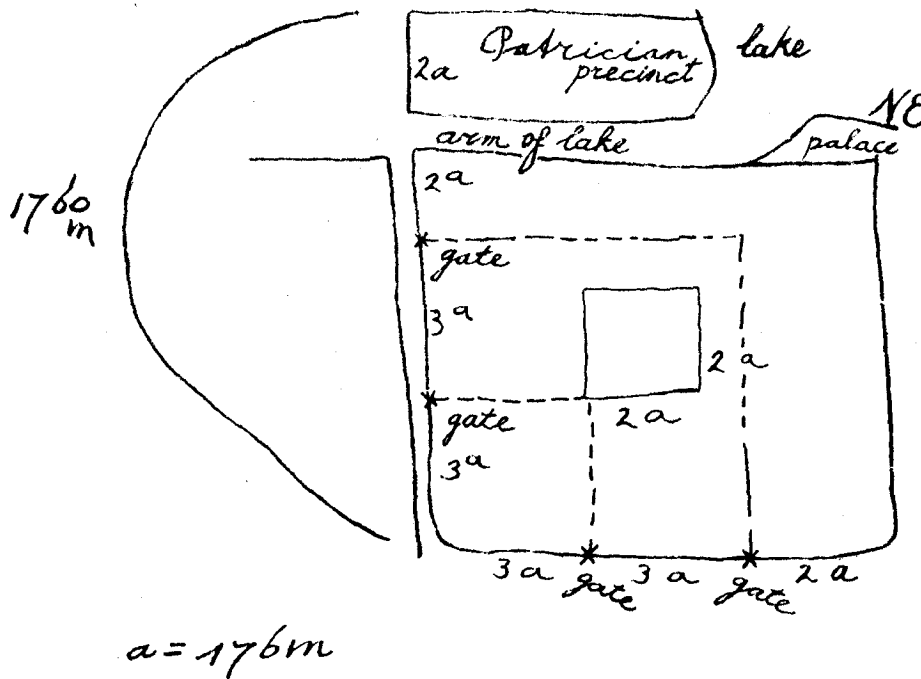 Patrician
precinct
lake
2a
NE
palace
arm of lake
1760
m
2a
gate
3a
2 a
gate
2a
3a
3a
gate
3a
gate
2a
a = 176m